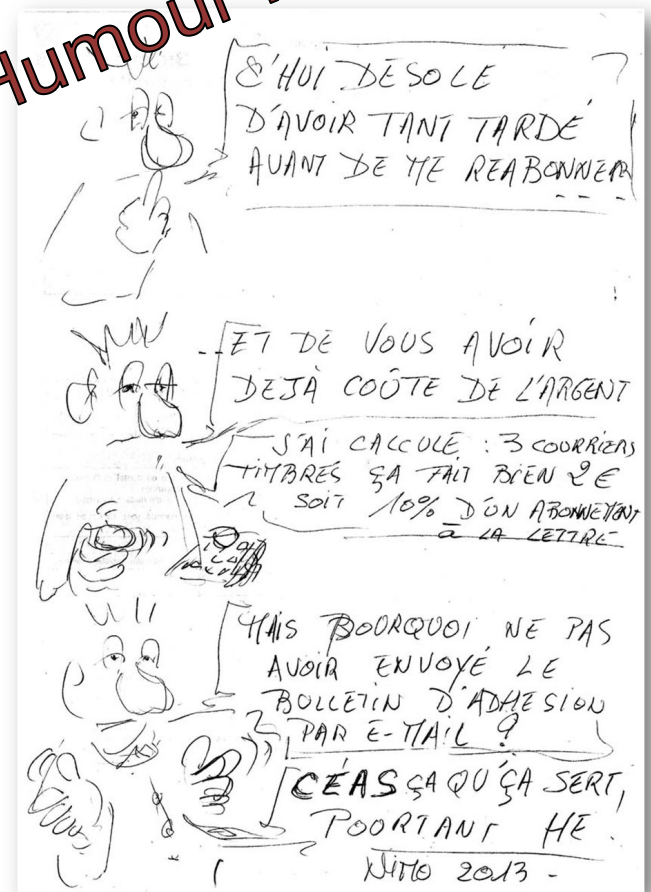 Humour
S'HUI DESOLE
D'AVOIR TANT TARDÉ
AVANT DE ME REABONNER
- - -
--ET DE VOUS AVOIR
DEJÀ COÛTE DE L'ARGENT
J'AI CALCULÉ : 3 COURRIERS
TIMBRES ÇA FAIT BIEN 2€
SOIT 10% D'UN ABONNEMENT
à LA LETTRE
MAIS BOURQUOI NE PAS
AVOIR ENVOYÉ LE
BOLLETIN D'ADHESION
PAR E-MAIL ?
CÉAS ÇA QU'ÇA SERT,
POORTANT HE.
NIMO 2013 -